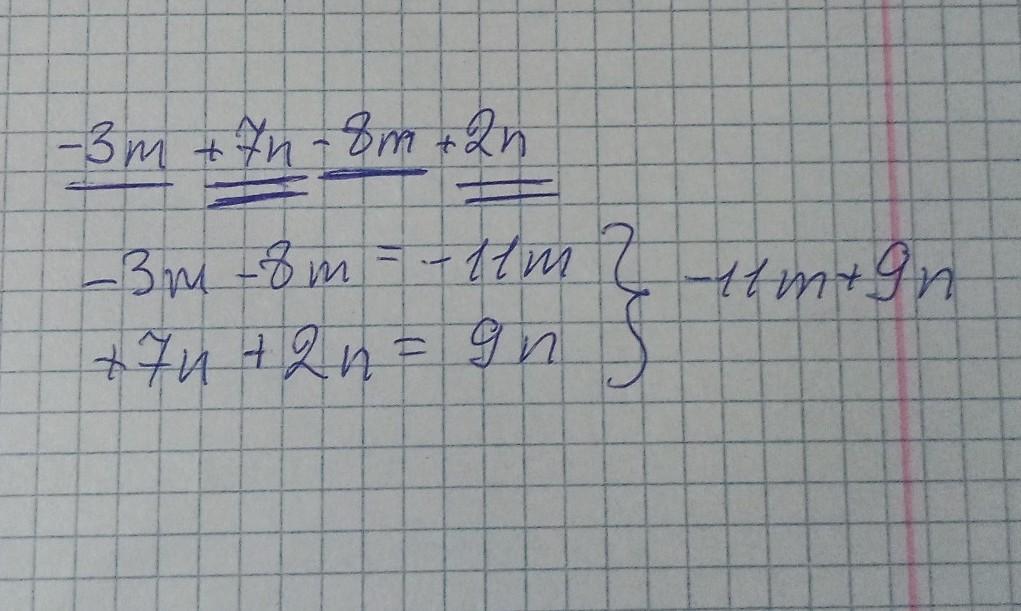 -3m +7n -8m +2n
-3m -8m = -11m } -11m+9n
+7n +2n = 9n